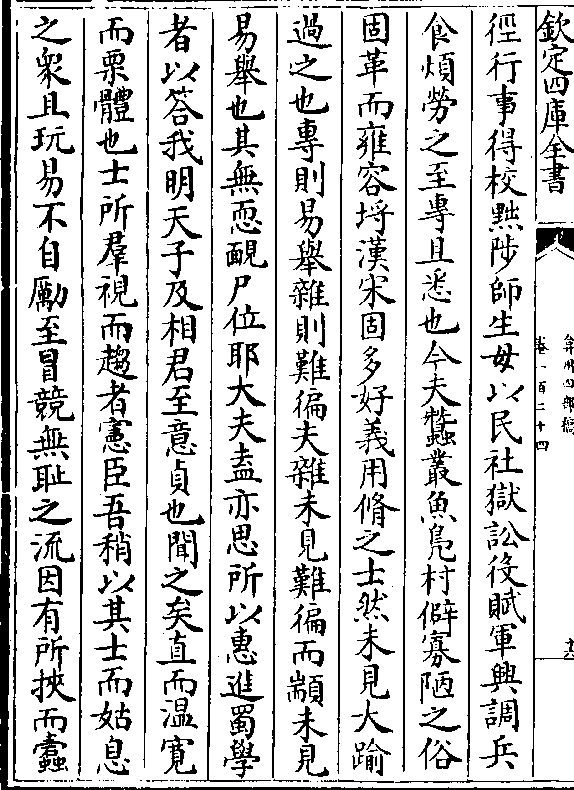 欽定四庫全書
弇州四部稿
卷一百二十四
徑行事得校黜陟師生毋以民社獄訟役賦軍興調兵
食煩勞之至專且悉也今夫蠶叢魚鳧村僻寡陋之俗
固革而雍容埒漢宋固多好義用脩之士然未見大踰
過之也專則易舉雜則難徧夫雜未見難徧而顓未見
易舉也其無恧靦尸位耶大夫盍亦思所以惠進蜀學
者以答我明天子及相君至意貞也聞之矣直而溫寛
而栗體也士所羣視而趨者憲臣吾稍以其士而姑息
之衆且玩易不自勵至冒競無恥之流因有所挾而蠹